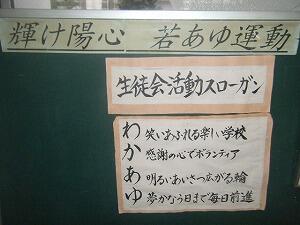 輝け陽心 若あゆ運動
生徒会活動スローガン
わ 笑いあふれる楽しい学校
か 感謝の心でボランティア
あ 明るいあいさつ広がる輪
ゆ 夢かなう日まで毎日前進